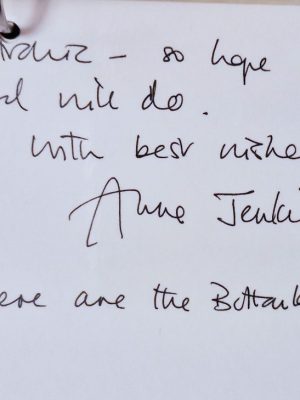 – so hope
d will do.
with best wishe
Anne Jenki
ere are the